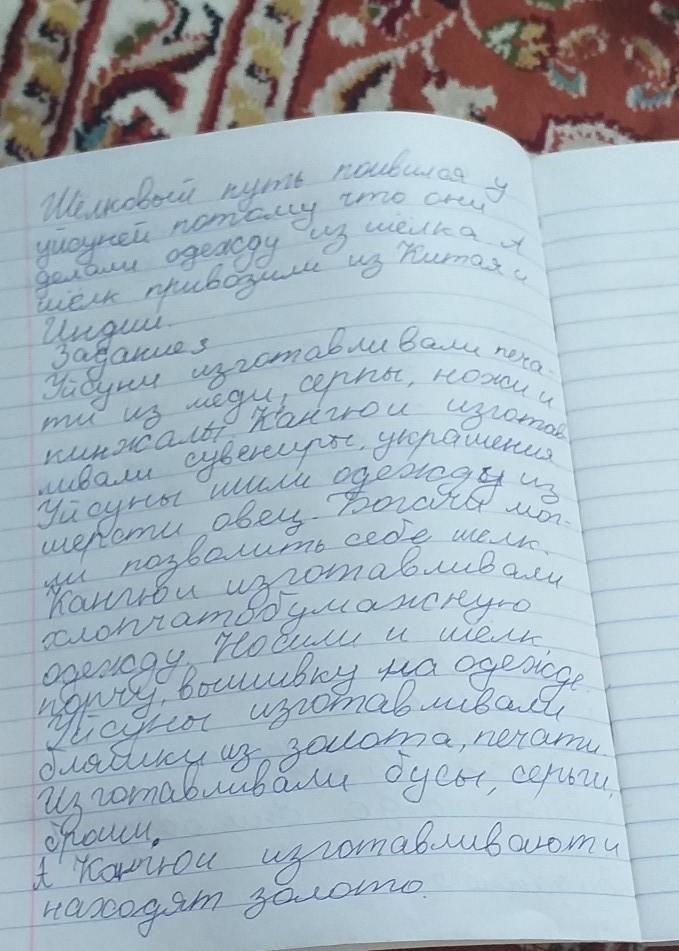 Шёлковый путь появился у
уйсуней потому что они
делали одежду из шёлка. А
шёлк привозили из Китая и
Индии.
Задание 3
Уйсуни изготавливали печа-
ти из меди, серпы, ножи и
кинжалы. Кангюи изготав
ливали сувениры, украшения
Уйсуны шили одежды из
шерсти овец. Богачи мог-
ли позволить себе шёлк.
Кангюи изготавливали
хлопчатобумажную
одежду. Носили и шёлк,
парчу, вышивку на одежде.
Уйсуны изготавливали
бляшки из золота, печати.
Изготавливали бусы, серьги,
броши.
А Кангюи изготавливают и
находят золото.